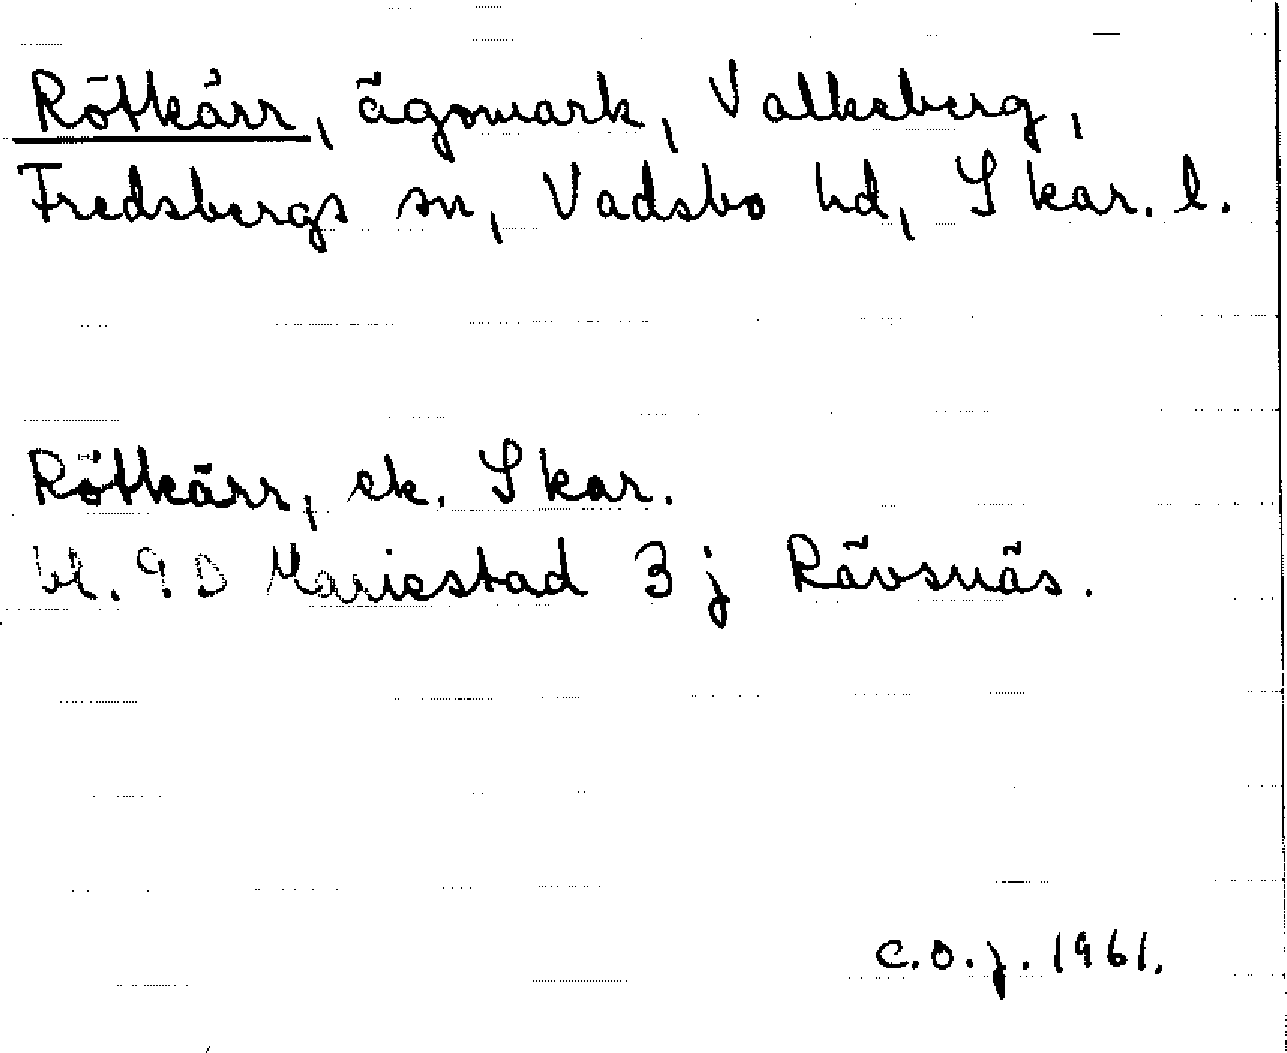 Rötkärr, ägomark, Valkeberg,
Fredsbergs sn, Vadsbo hd, Skar. l.
Rötkärr, ek. Skar.
bl. 9D Mariestad 3 j Rävsnäs.
C.O.J. 1961.